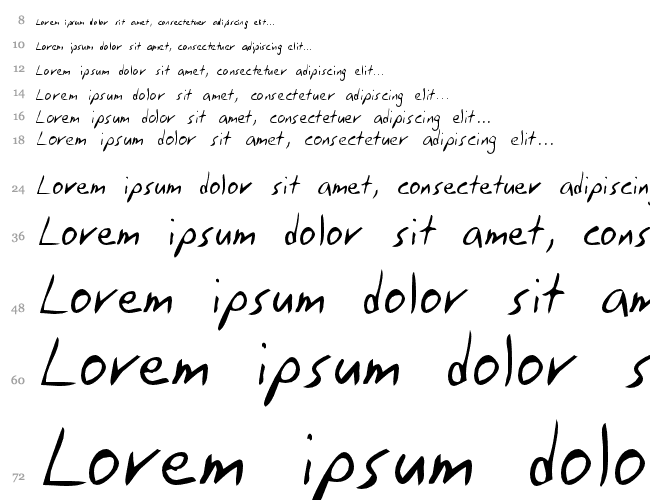 8 Lorem ipsum dolor sit amet, consectetuer adipiscing elit...
10 Lorem ipsum dolor sit amet, consectetuer adipiscing elit...
12 Lorem ipsum dolor sit amet, consectetuer adipiscing elit...
14 Lorem ipsum dolor sit amet, consectetuer adipiscing elit...
16 Lorem ipsum dolor sit amet, consectetuer adipiscing elit...
18 Lorem ipsum dolor sit amet, consectetuer adipiscing elit...
24 Lorem ipsum dolor sit amet, consectetuer adipiscing
36 Lorem ipsum dolor sit amet, cons
48 Lorem ipsum dolor sit am
60 Lorem ipsum dolor s
72 Lorem ipsum dolo